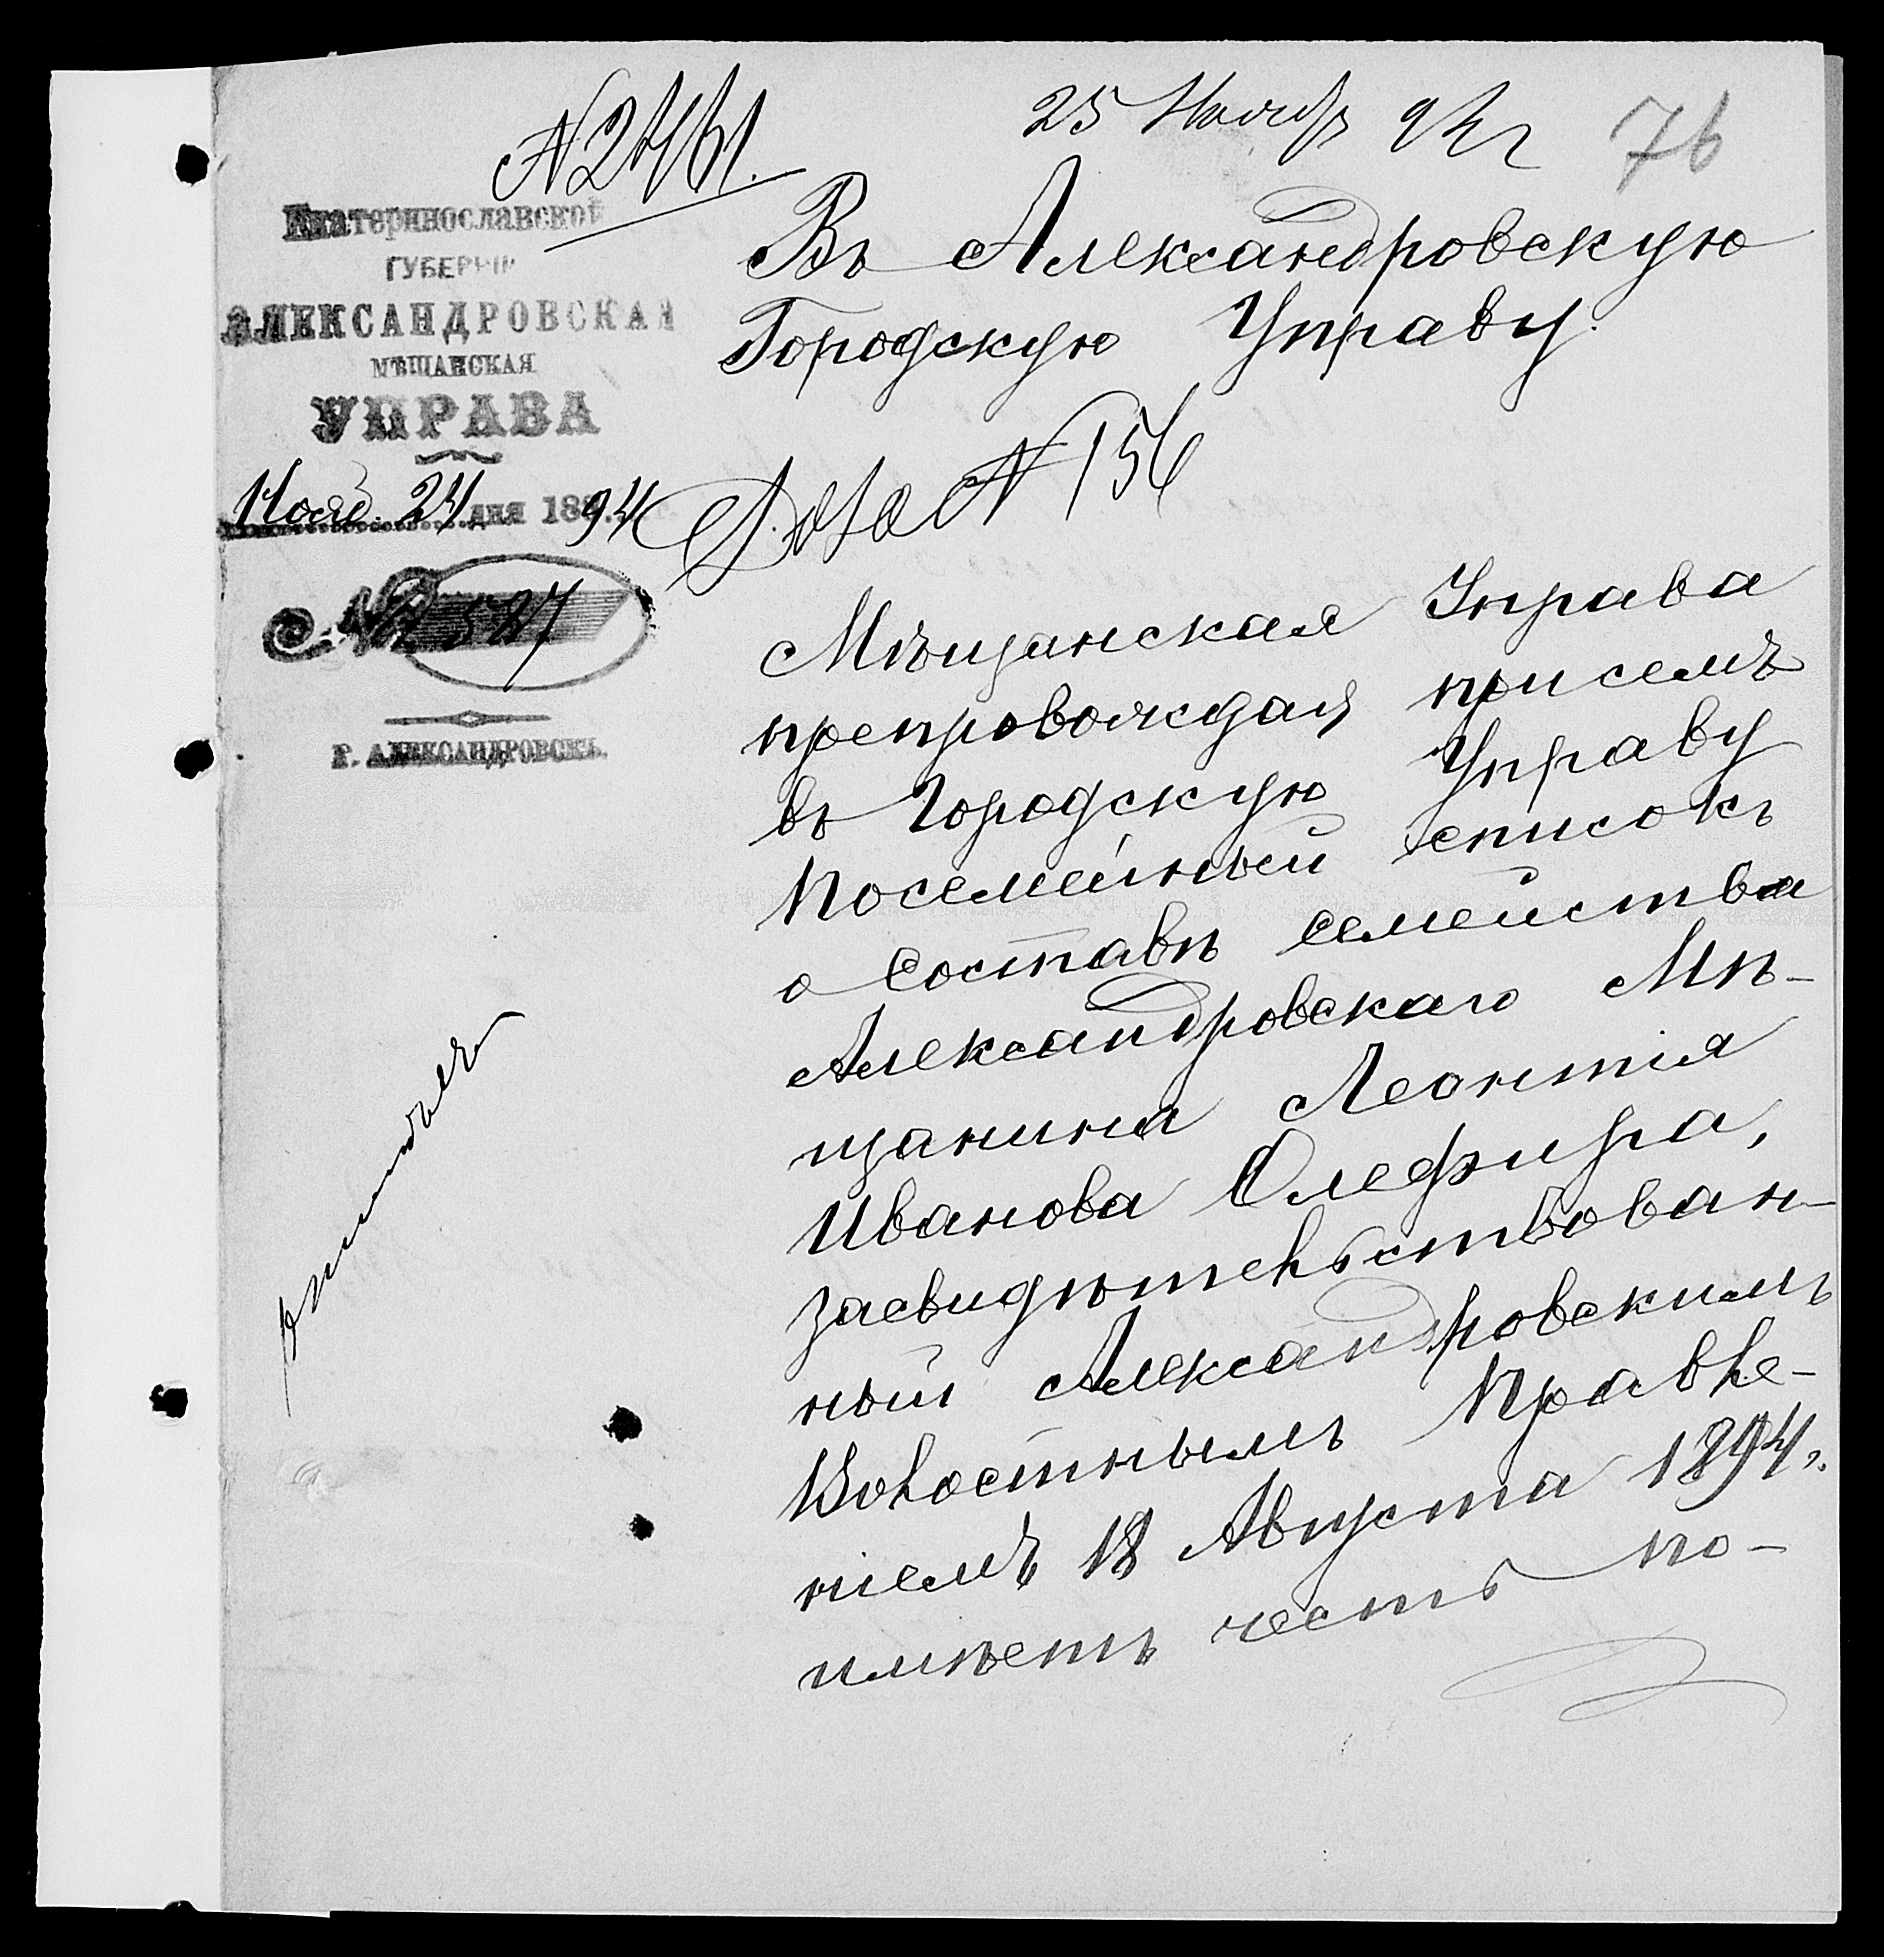 25 Ноября 94 г
76
Екатеринославской
ГУБЕРНІИ
АЛЕКСАНДРОВСКАЯ
МѢЩАНСКАЯ
УПРАВА
Нояб. 24 дня 1894
№ 587
Г. АЛЕКСАНДРОВСКЪ.
Въ Александровскую
Городскую Управу.
Дѣло № 156
Мѣщанская Управа
препровождая при семъ
въ Городскую Управу
посемейный списокъ
о составѣ семейства
Александровскаго Мѣ-
щанина Леонтія
Иванова Олефира,
засвидѣтельствован-
ный Александровскимъ
Волостнымъ Правле-
ніемъ 18 Августа 1894 г.
имѣетъ честь по-